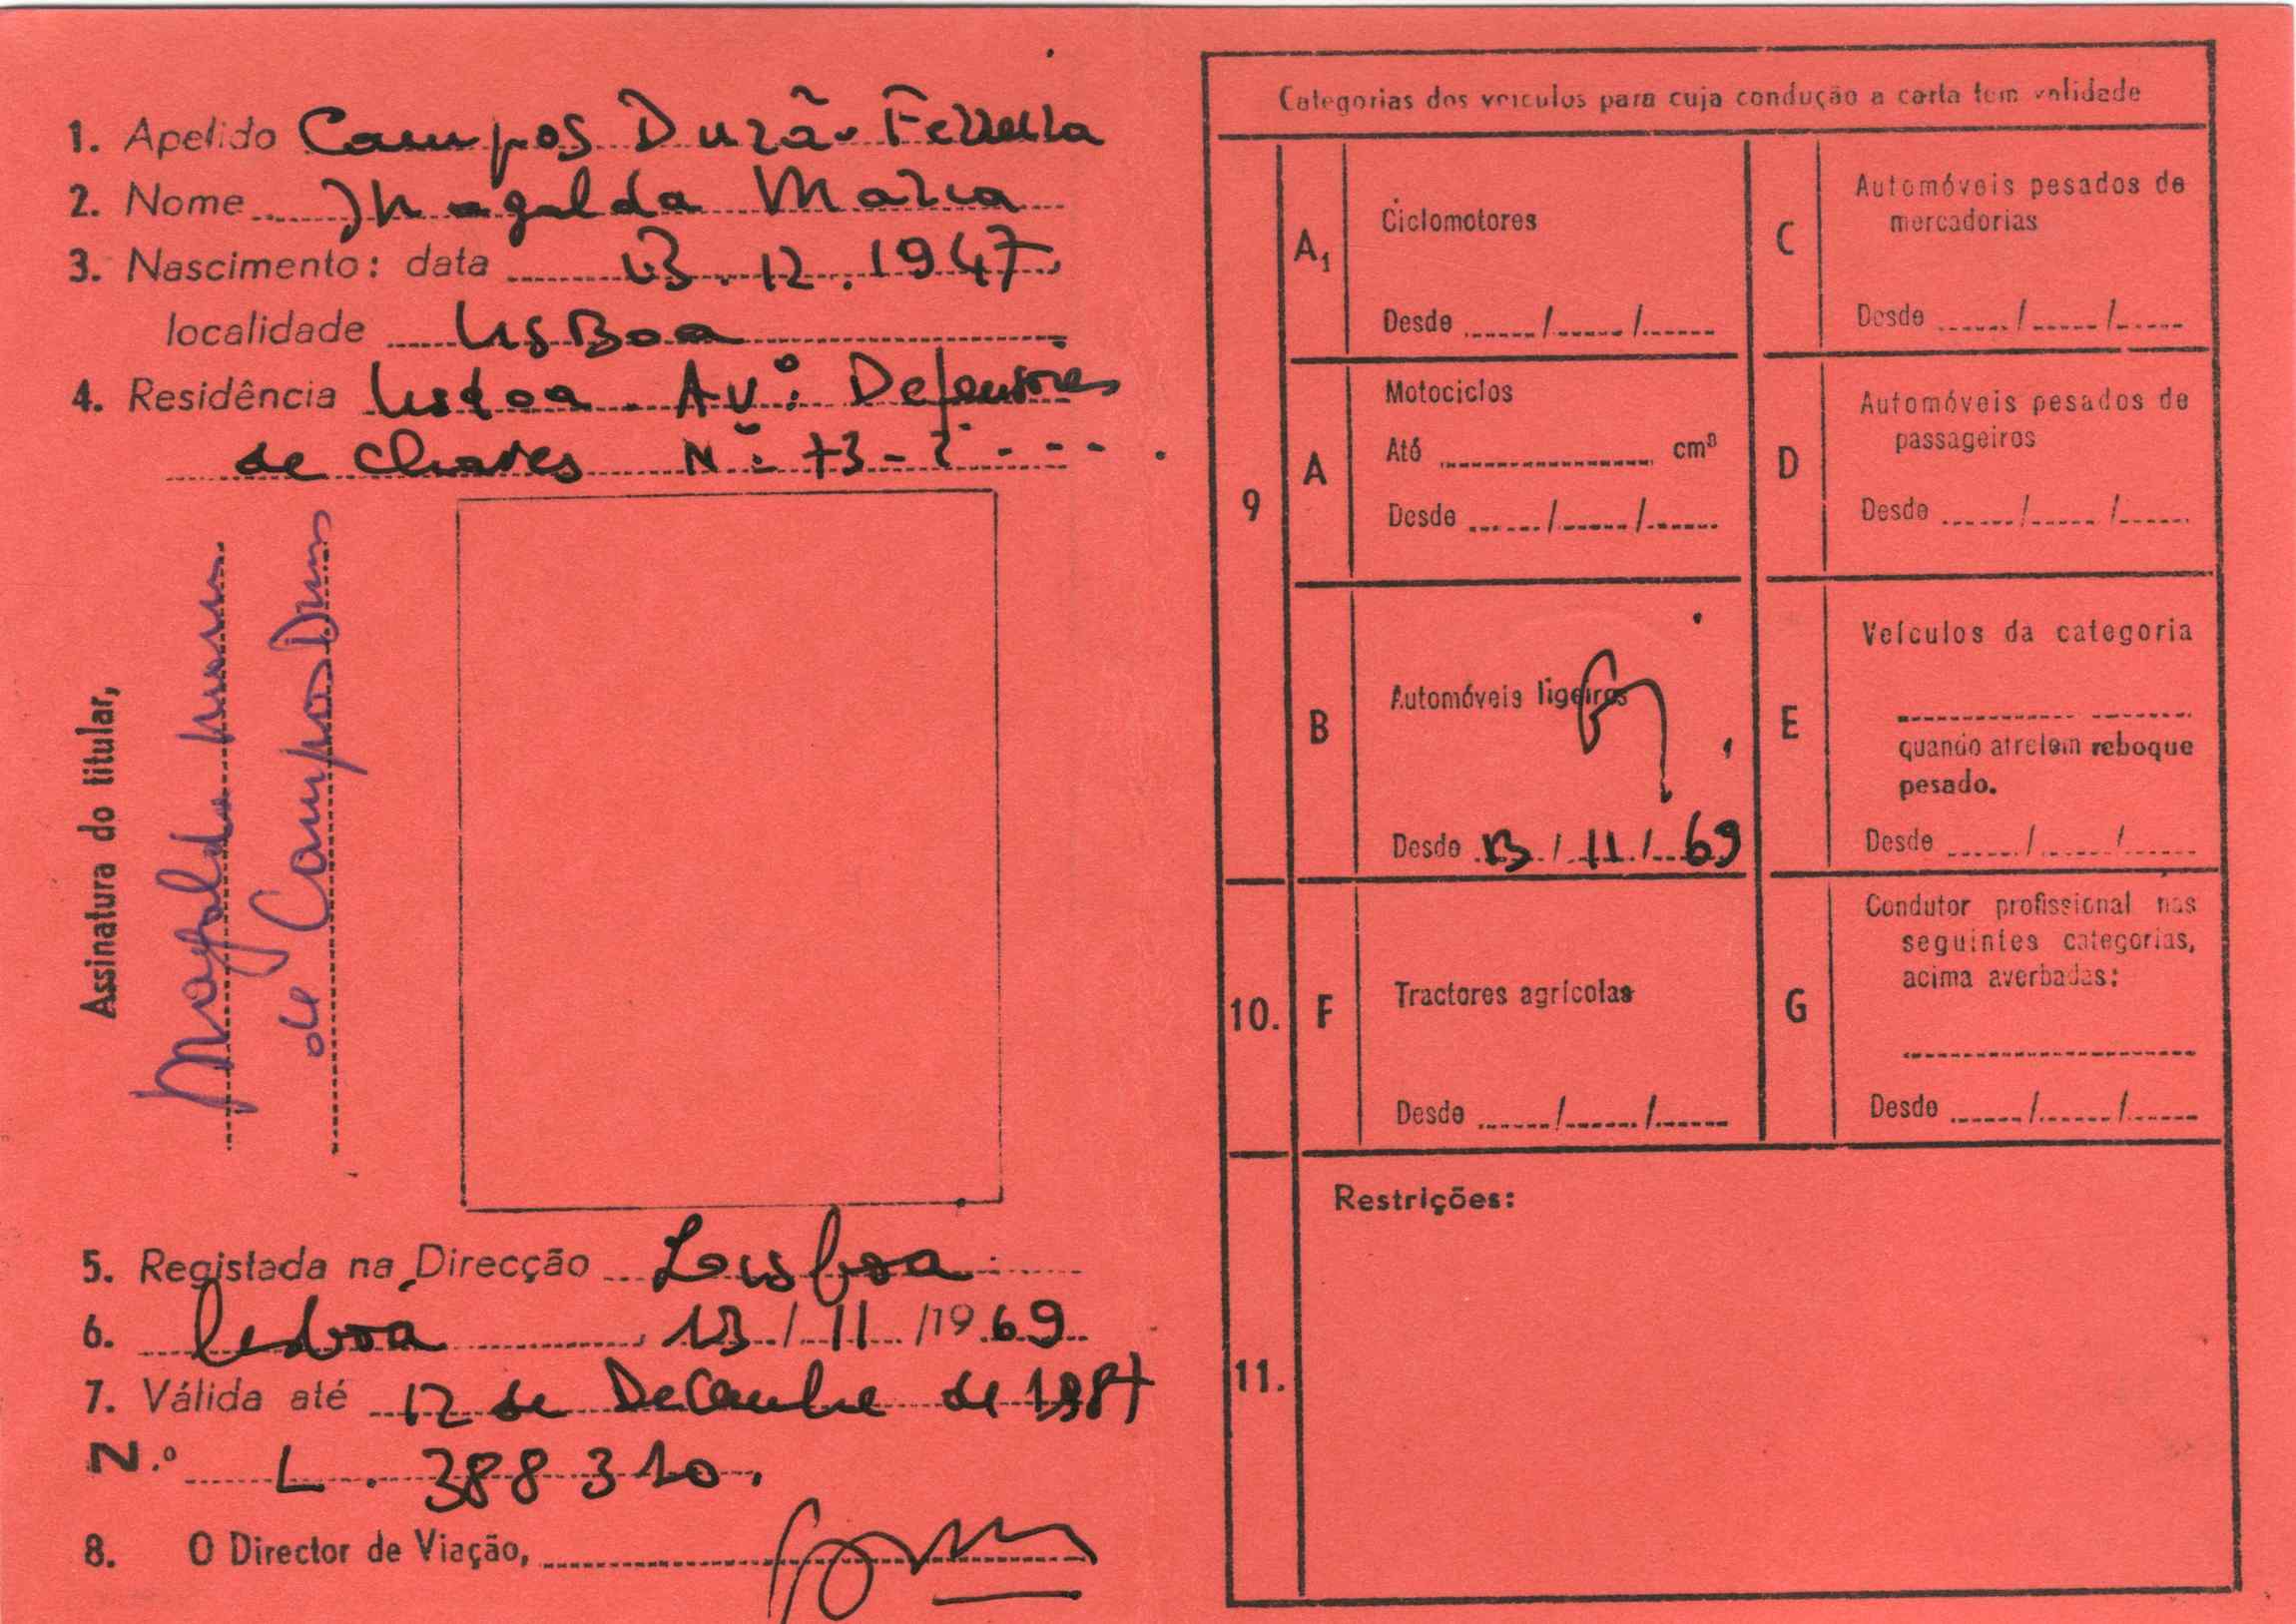 1. Apelido Campos Durão Ferreira
2. Nome Magalda Maria
3. Nascimento: data 13.12.1947
localidade Lisboa
4. Residência Lisboa Avº: Defensores
de Chaves Nº 73-2
Assinatura do titular,
Magalda Maria
de Campos
5. Registada na Direcção Lisboa
6. Lisboa, 13/11/1969
7. Válida até 12 de Dezembro de 1987
N.º L. 388310.
8. O Director de Viação,
Categorias dos veículos para cuja condução a carta tem validade
9
A1
Ciclomotores
Desde / /
C
Automóveis pesados de
mercadorias
Desde / /
A
Motociclos
Até cm³
Desde / /
D
Automóveis pesados de
passageiros
Desde / /
B
Automóveis ligeiros
Desde 13/11/69
E
Veículos da categoria
quando atrelem reboque
pesado.
Desde / /
10.
F
Tractores agrícolas
Desde / /
G
Condutor profissional nas
seguintes categorias,
acima averbadas:
Desde / /
11.
Restrições: